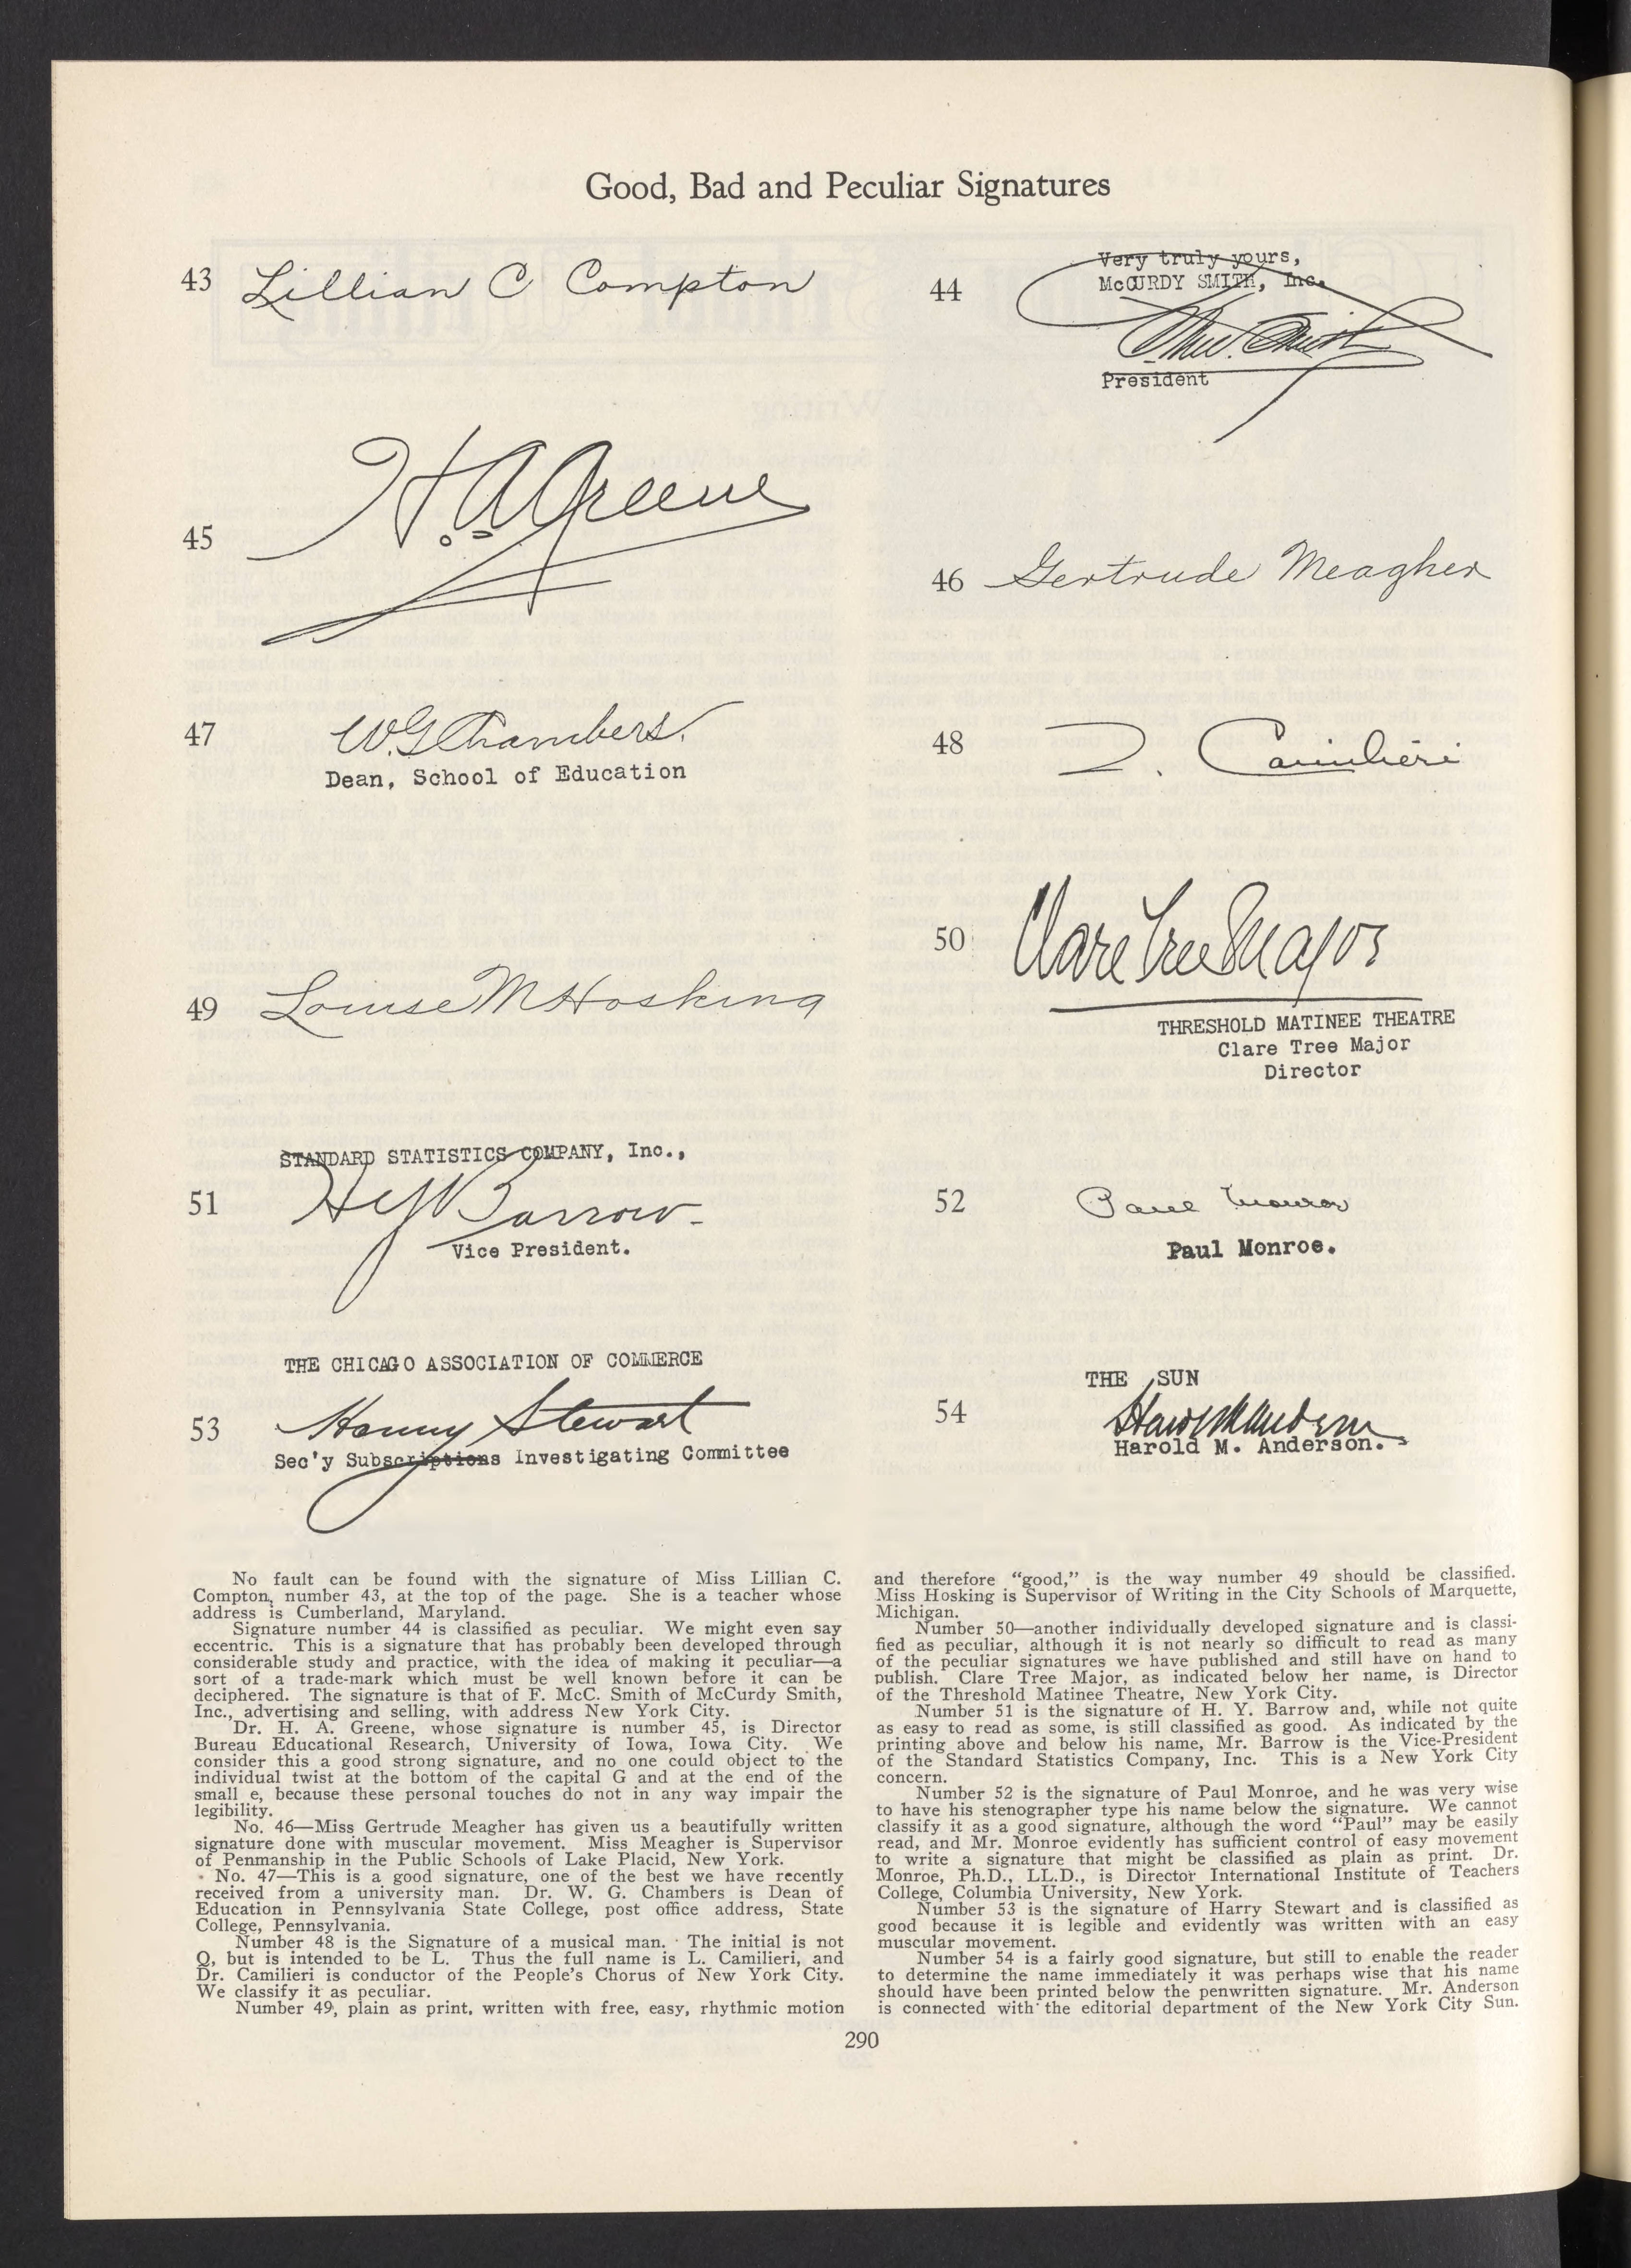 Good, Bad and Peculiar Signatures
43 Lillian C Compton
44
Very truly yours,
McCURDY SMITH, Inc.
President
45 H. A. Greene
46 Gertrude Meagher
47 W. G. Chambers.
Dean, School of Education
48 L. Camilieri
49 Louise M Hosking
50 Clare Tree Major
THRESHOLD MATINEE THEATRE
Clare Tree Major
Director
STANDARD STATISTICS COMPANY, Inc.,
51 H Y Barrow
Vice President.
52 Paul Monroe
Paul Monroe.
THE CHICAGO ASSOCIATION OF COMMERCE
53 Harry Stewart
Sec'y Subscriptions Investigating Committee
THE SUN
54 Harold M Anderson
Harold M. Anderson.
No fault can be found with the signature of Miss Lillian C.
Compton, number 43, at the top of the page. She is a teacher whose
address is Cumberland, Maryland.
Signature number 44 is classified as peculiar. We might even say
eccentric. This is a signature that has probably been developed through
considerable study and practice, with the idea of making it peculiar—a
sort of a trade-mark which must be well known before it can be
deciphered. The signature is that of F. McC. Smith of McCurdy Smith,
Inc., advertising and selling, with address New York City.
Dr. H. A. Greene, whose signature is number 45, is Director
Bureau Educational Research, University of Iowa, Iowa City. We
consider this a good strong signature, and no one could object to the
individual twist at the bottom of the capital G and at the end of the
small e, because these personal touches do not in any way impair the
legibility.
No. 46—Miss Gertrude Meagher has given us a beautifully written
signature done with muscular movement. Miss Meagher is Supervisor
of Penmanship in the Public Schools of Lake Placid, New York.
No. 47—This is a good signature, one of the best we have recently
received from a university man. Dr. W. G. Chambers is Dean of
Education in Pennsylvania State College, post office address, State
College, Pennsylvania.
Number 48 is the Signature of a musical man. The initial is not
Q, but is intended to be L. Thus the full name is L. Camilieri, and
Dr. Camilieri is conductor of the People's Chorus of New York City.
We classify it as peculiar.
Number 49, plain as print, written with free, easy, rhythmic motion
and therefore "good," is the way number 49 should be classified.
Miss Hosking is Supervisor of Writing in the City Schools of Marquette,
Michigan.
Number 50—another individually developed signature and is classi-
fied as peculiar, although it is not nearly so difficult to read as many
of the peculiar signatures we have published and still have on hand to
publish. Clare Tree Major, as indicated below her name, is Director
of the Threshold Matinee Theatre, New York City.
Number 51 is the signature of H. Y. Barrow and, while not quite
as easy to read as some, is still classified as good. As indicated by the
printing above and below his name, Mr. Barrow is the Vice-President
of the Standard Statistics Company, Inc. This is a New York City
concern.
Number 52 is the signature of Paul Monroe, and he was very wise
to have his stenographer type his name below the signature. We cannot
classify it as a good signature, although the word "Paul" may be easily
read, and Mr. Monroe evidently has sufficient control of easy movement
to write a signature that might be classified as plain as print. Dr.
Monroe, Ph.D., LL.D., is Director International Institute of Teachers
College, Columbia University, New York.
Number 53 is the signature of Harry Stewart and is classified as
good because it is legible and evidently was written with an easy
muscular movement.
Number 54 is a fairly good signature, but still to enable the reader
to determine the name immediately it was perhaps wise that his name
should have been printed below the penwritten signature. Mr. Anderson
is connected with the editorial department of the New York City Sun.
290